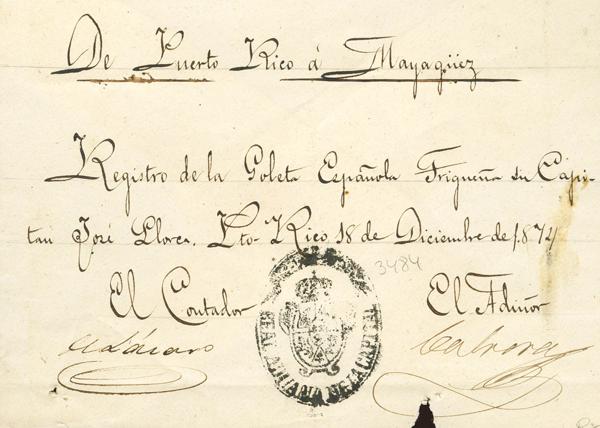 De Puerto Rico á Mayagüez
Registro de la Goleta Española Trigueña su Capi-
tan José Llorca. Pto- Rico 18 de Diciembre de 1.872
3484
El Contador
El Admor
REAL ADUANA DE LA CAPITAL